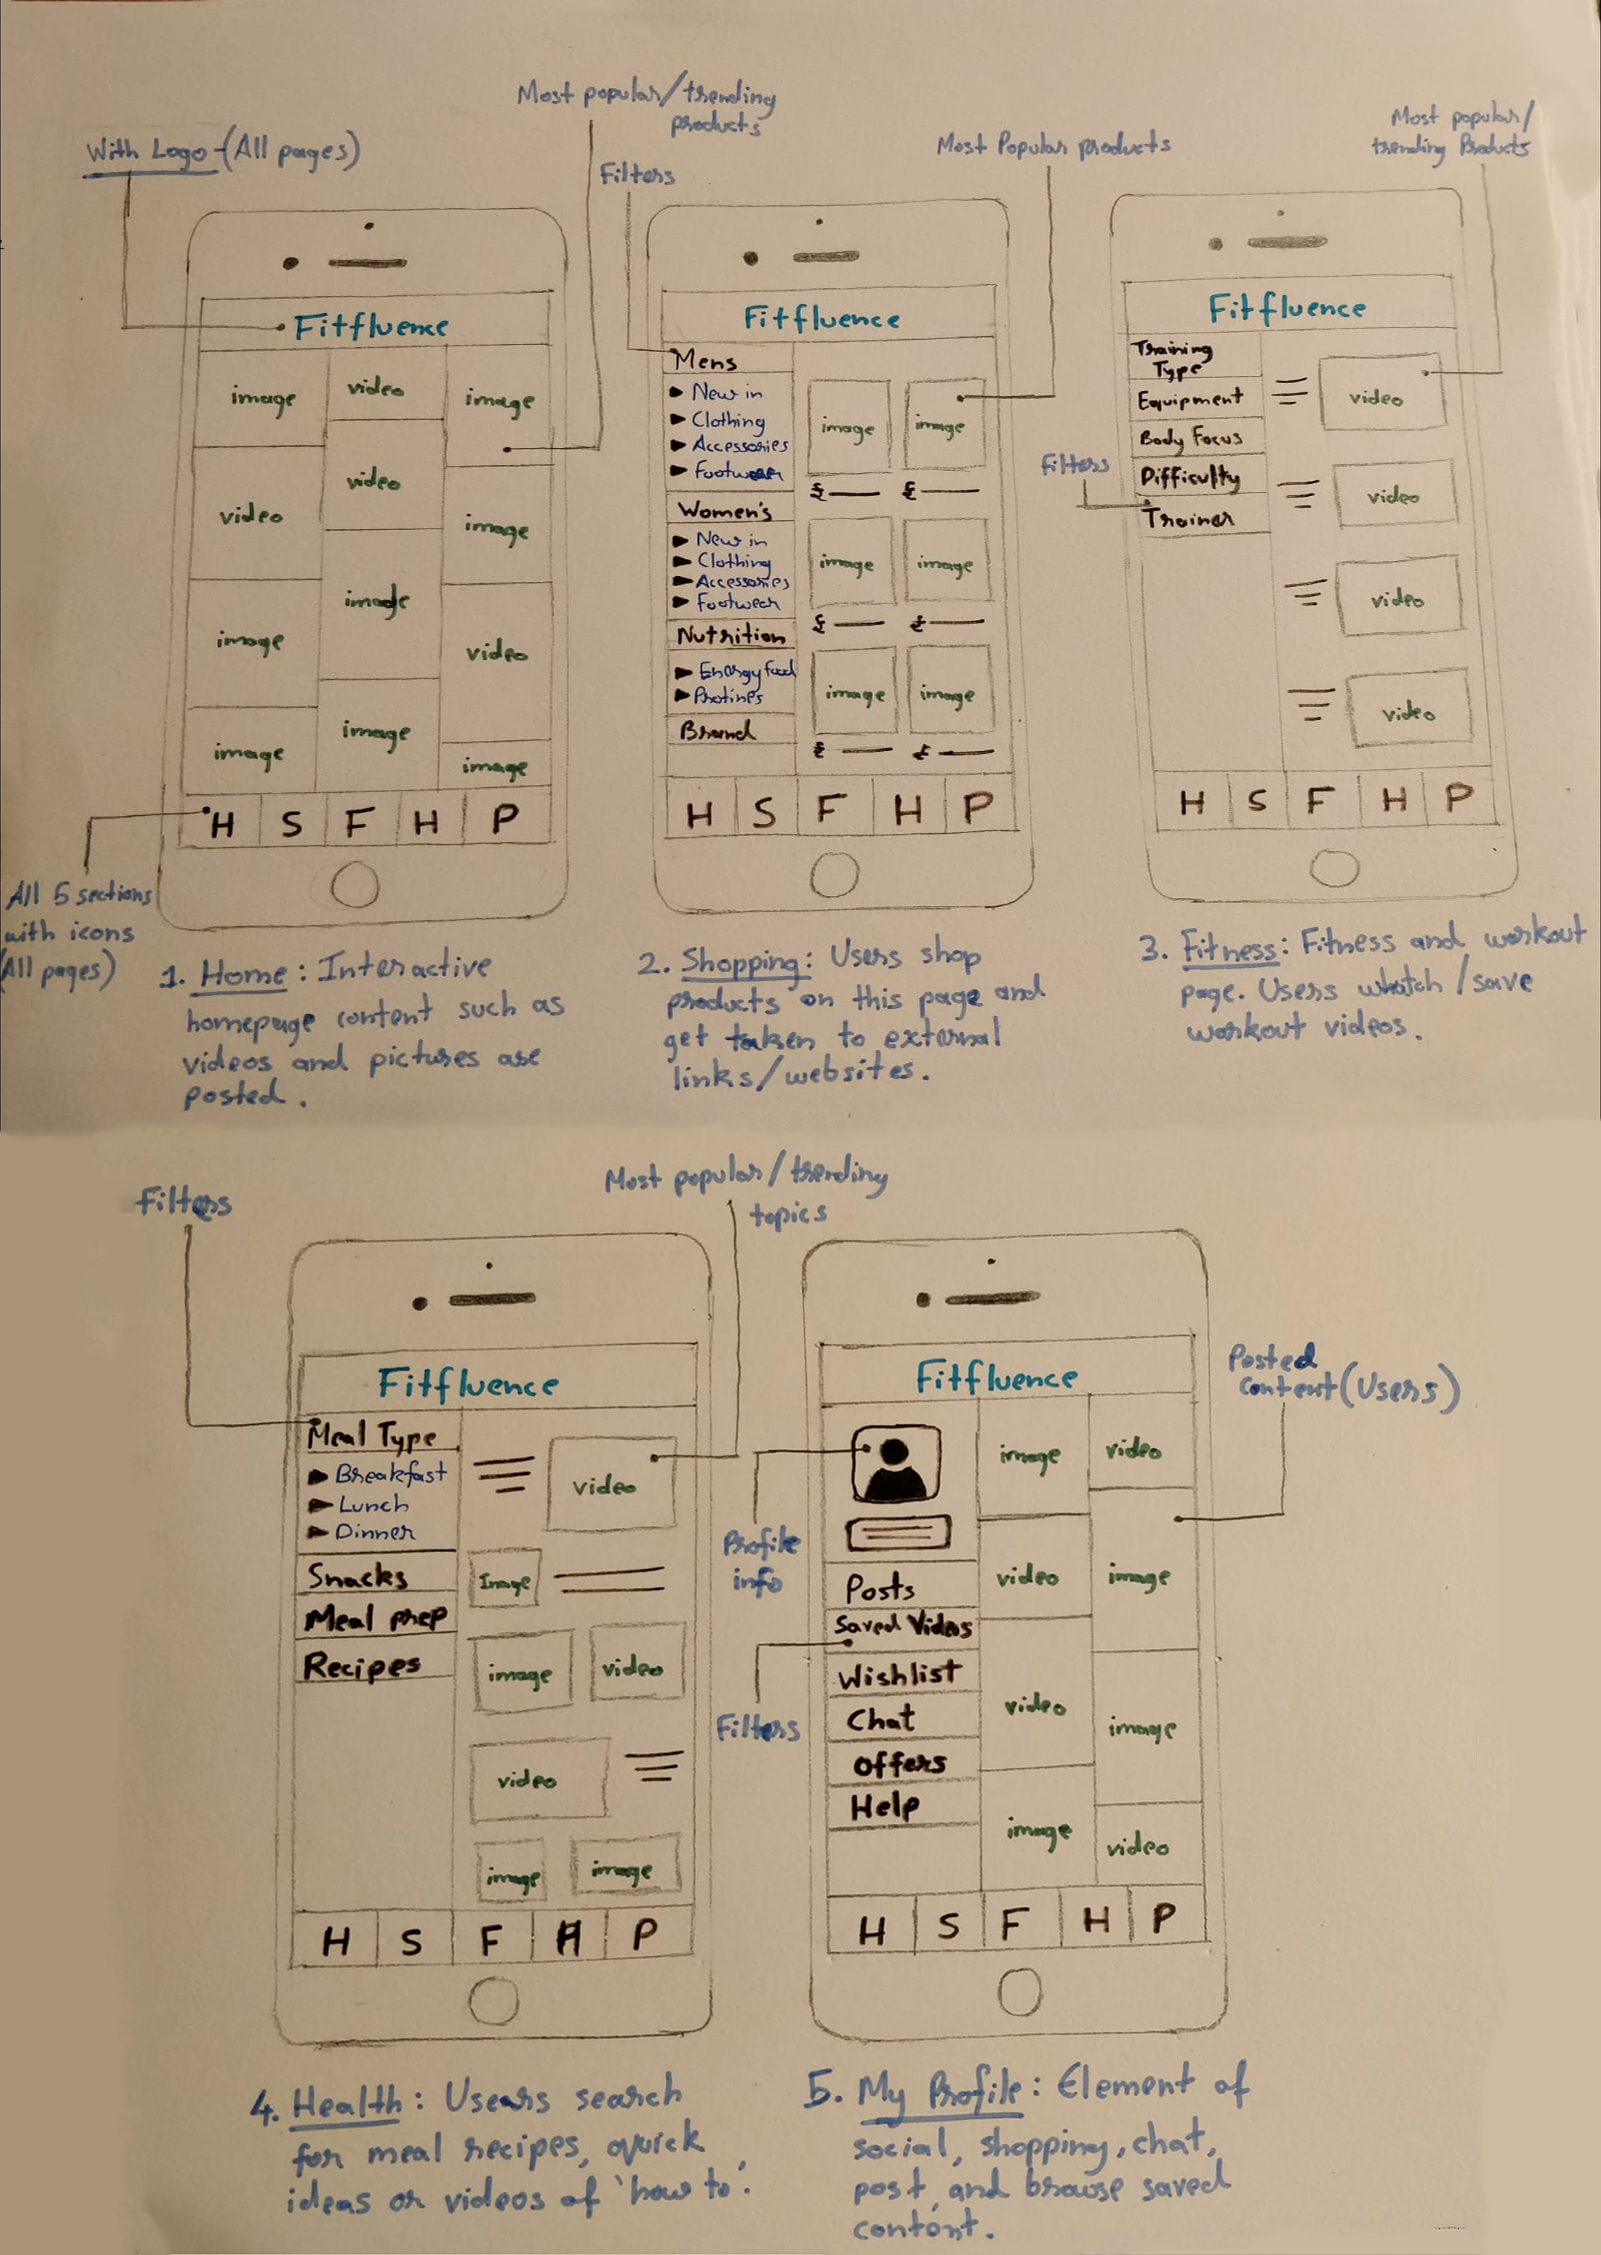 With Logo-(All pages)
Most popular/trending
products
Filters
Most Popular products
Most popular/
trending Products
Fitfluence
image
video
image
video
video
image
image
image
video
image
image
image
H S F H P
All 5 sections
with icons
(All pages)
1. Home: Interactive
homepage content such as
videos and pictures are
posted.
Fitfluence
Mens
New in
Clothing
Accessories
Footwear
Women's
New in
Clothing
Accessories
Footwear
Nutrition
Energy food
Protines
Brand
image image
£ £
image image
£ £
image image
£ £
H S F H P
2. Shopping: Users shop
products on this page and
get taken to external
links/websites.
Fitfluence
Training
Type
Equipment
Body Focus
Difficulty
Trainer
Filters
video
video
video
video
H S F H P
3. Fitness: Fitness and workout
page. Users whatch/save
workout videos.
Filters
Most popular/trending
topics
Fitfluence
Meal Type
Breakfast
Lunch
Dinner
Snacks
Meal prep
Recipes
video
Image
image video
video
image image
H S F H P
4. Health: Users search
for meal recipes, quick
ideas or videos of 'how to'.
Fitfluence
Posted
Content(Users)
Profile
info
Filters
Posts
Saved Videos
Wishlist
Chat
Offers
Help
image
video
video
image
video
image
image
video
H S F H P
5. My Profile: Element of
social, shopping, chat,
post, and browse saved
content.